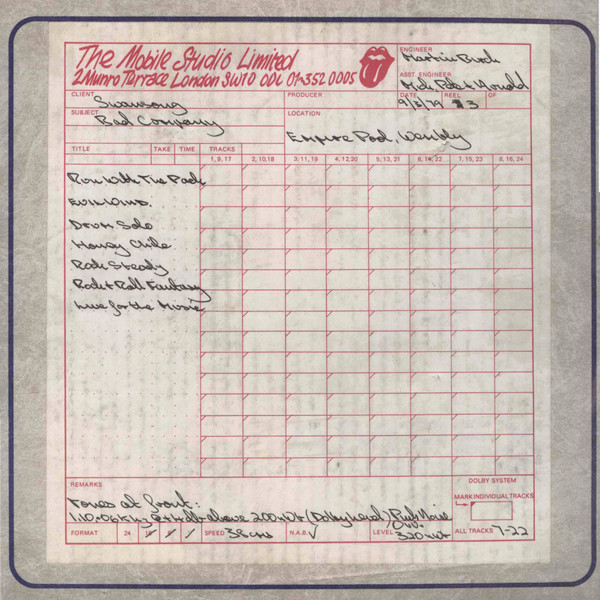 The Mobile Studio Limited
2 Munro Terrace London SW10 0DL 01-352 0005
ENGINEER
Martin Birch
ASST. ENGINEER
Mick,
DATE REEL OF
9/3/79 3
CLIENT
Swansong
PRODUCER
SUBJECT
Bad Company
LOCATION
Empire Pool, Wembly
TITLE TAKE TIME TRACKS
1, 9, 17 2, 10, 18 3, 11, 19 4, 12, 20 5, 13, 21 6, 14, 22 7, 15, 23 8, 16, 24
Run With The Pack
Evil Wind.
Drum Solo
Honey Child
Rock Steady
Rock & Roll Fantasy
Live for the Music
REMARKS
DOLBY SYSTEM
Tones at front:
MARK INDIVIDUAL TRACKS
1.10. above 200 (Dolby Level) Pink Noise
FORMAT 24 SPEED 38 cms N.A.B. ✓ LEVEL 320 ALL TRACKS 7-22